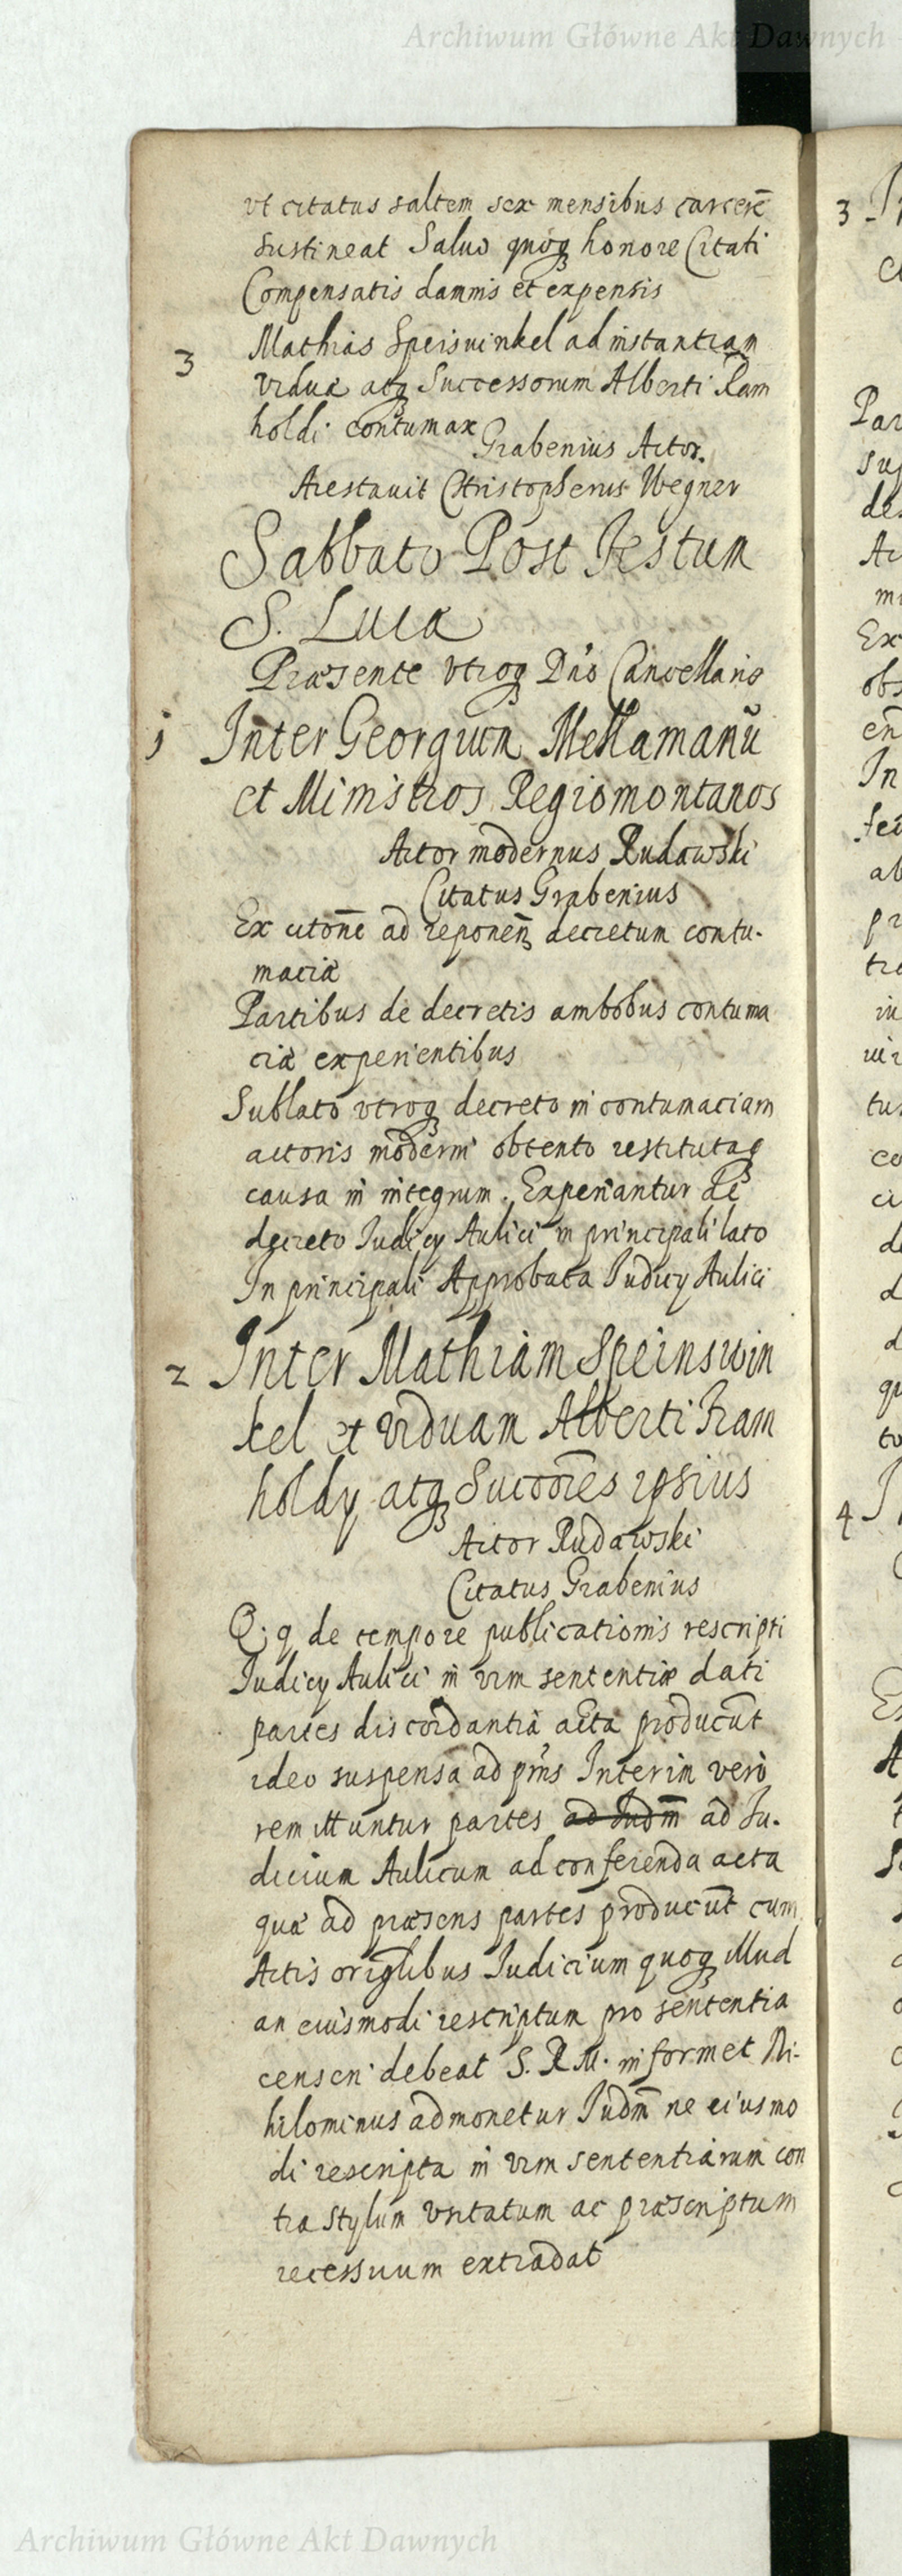 Archiwum Główne Akt Dawnych
vt citatus saltem sex mensibus carcerē
sustineat Saluo quoqꝫ honore Citati
Compensatis damnis et expensis
3 Mathias Speiswinkel ad instantiam
viduæ atqꝫ Successorum Alberti Ram
holdi contumax
Grabenius Actor.
Arestauit Christopherus Wegner
Sabbato Post Festum
S. Lucæ
Præsente vtroqꝫ Dño Cancellario
1 Inter Georgium Mellamanū
et Ministros Regiomontanos
Actor modernus Rudawski
Citatus Grabenius
Ex citōne ad reponenꝫ decretum contu-
maciæ
Partibus de decretis ambobus contuma
ciæ experientibus
Sublato vtroqꝫ decreto in contumaciam
actoris moderni obtento restitutaqꝫ
causa in integrum. Experiantur de
decreto Iudicy Aulici in principali lato
In principali Approbata Iudicy Aulici
2 Inter Mathiam Speinswin
kel et viduam Alberti Fram
holdy atqꝫ Succōres ipsius
Actor Rudawski
Citatus Grabenius
Q; q de tempore publicationis rescripti
Iudicy Aulici in vim sententiæ dati
partes discordantia acta producūt
ideo suspensa ad prn̄s Interim vero
remittuntur partes ad Iudm̄ ad Iu-
dicium Aulicum ad conferenda acta
quæ ad præsens partes producūt cum
Actis origl̄ibus Iudicium quoqꝫ illud
an eiusmodi rescriptum pro sententia
censeri debeat S. R M. informet Ni-
hilominus admonetur Iudm̄ ne eiusmo
di rescripta in vim sententiarum con
tra stylum vsitatum ac præscriptum
recessuum extradat
3
4
Archiwum Główne Akt Dawnych